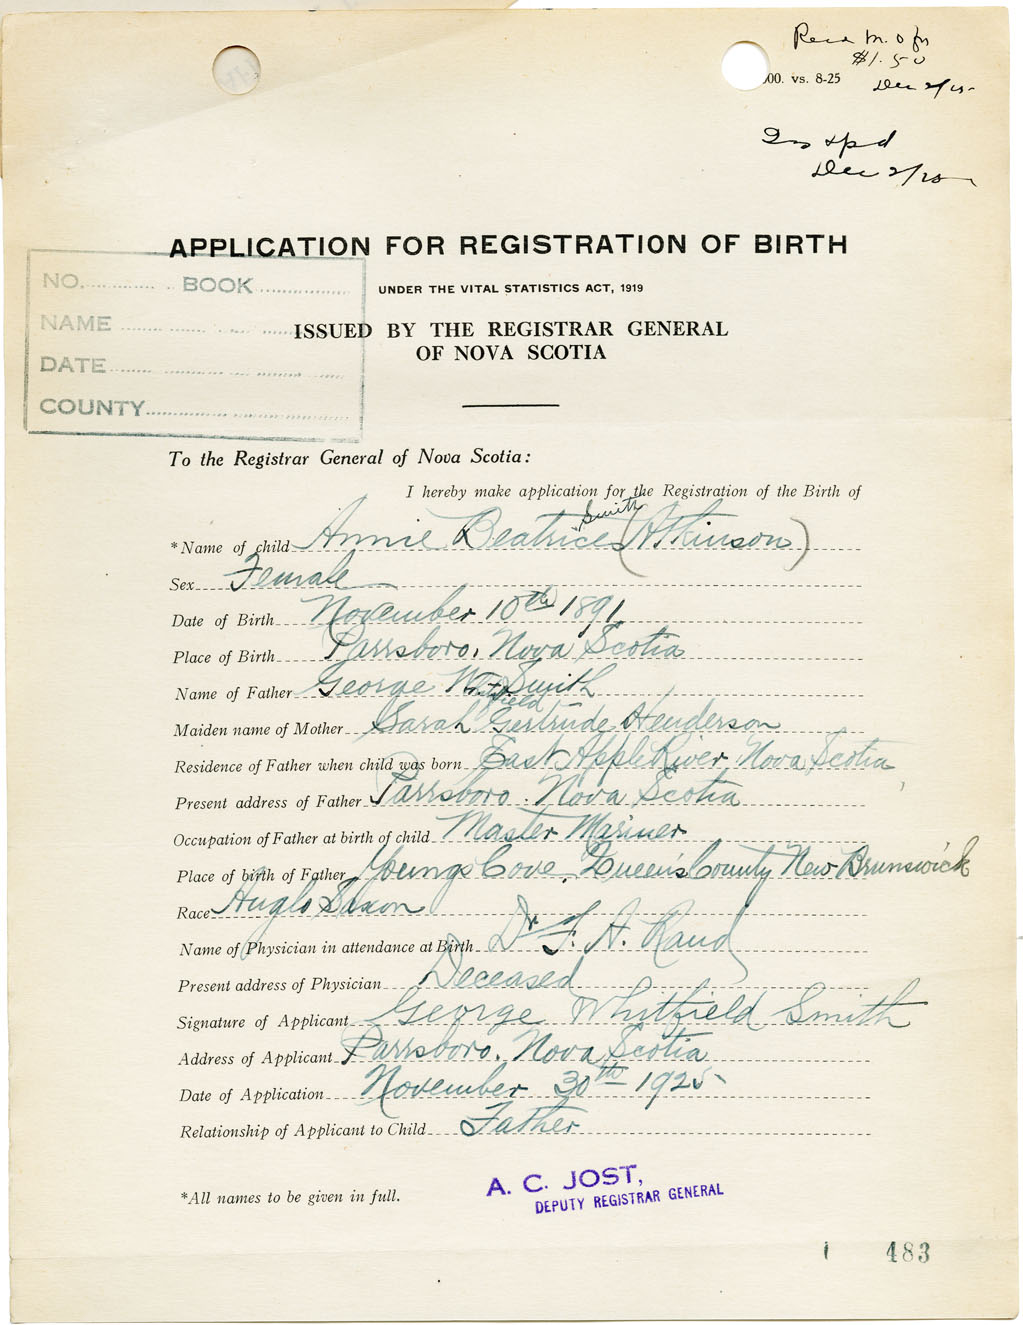 Recd M. O for
$1.50
Dec 2/25
000. vs. 8-25
Dec 2/25
APPLICATION FOR REGISTRATION OF BIRTH
UNDER THE VITAL STATISTICS ACT, 1919
ISSUED BY THE REGISTRAR GENERAL
OF NOVA SCOTIA
NO. BOOK
NAME
DATE
COUNTY
To the Registrar General of Nova Scotia:
I hereby make application for the Registration of the Birth of
Smith
*Name of child Annie Beatrice (Atkinson)
Sex Female
Date of Birth November 10th 1891
Place of Birth Parrsboro, Nova Scotia
Name of Father George Whitfield Smith
Maiden name of Mother Sarah Gertrude Henderson
Residence of Father when child was born East Apple River Nova Scotia
Present address of Father Parrsboro. Nova Scotia
Occupation of Father at birth of child Master Mariner
Place of birth of Father Youngs Cove, Queen's County New Brunswick
Race Anglo Saxon
Name of Physician in attendance at Birth Dr F. A. Rand
Present address of Physician Deceased
Signature of Applicant George Whitfield Smith
Address of Applicant Parrsboro. Nova Scotia
Date of Application November 30th 1925
Relationship of Applicant to Child Father
*All names to be given in full.
A. C. JOST,
DEPUTY REGISTRAR GENERAL
483